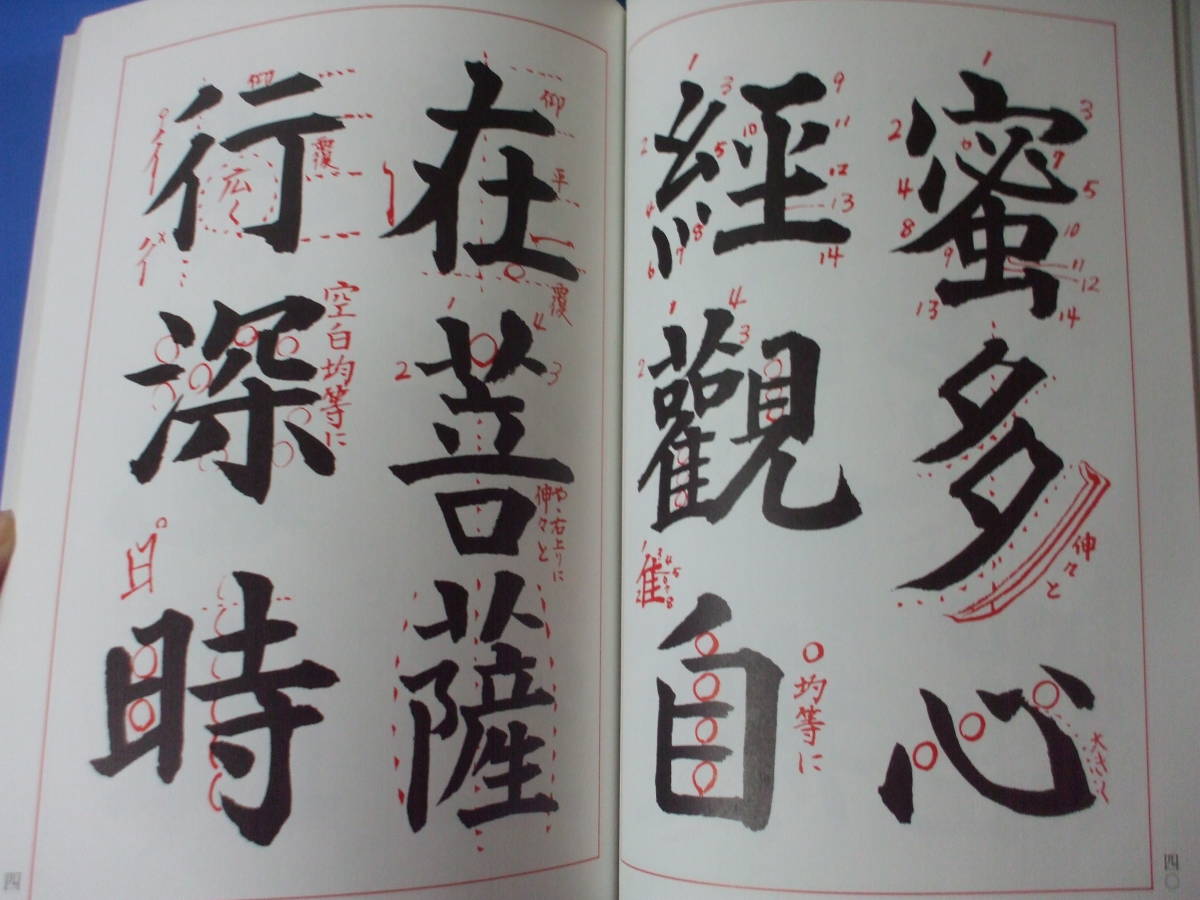 蜜多心
伸々と
經觀自
均等に
隹
四〇
在菩薩
仰
平
覆
やゝ右上りに
伸々と
行深時
仰
覆
広く
空白均等に
日
四